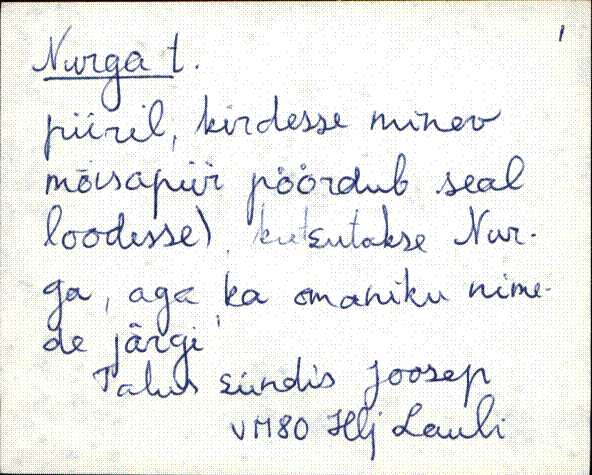 1
Nurga t.
piiril, kirdesse minev
mõisapiir pöördub seal
loodesse) kutsutakse Nur-
ga, aga ka omaniku nime-
de järgi
Talus sündis Joosep
VM80 Hlj Lauli